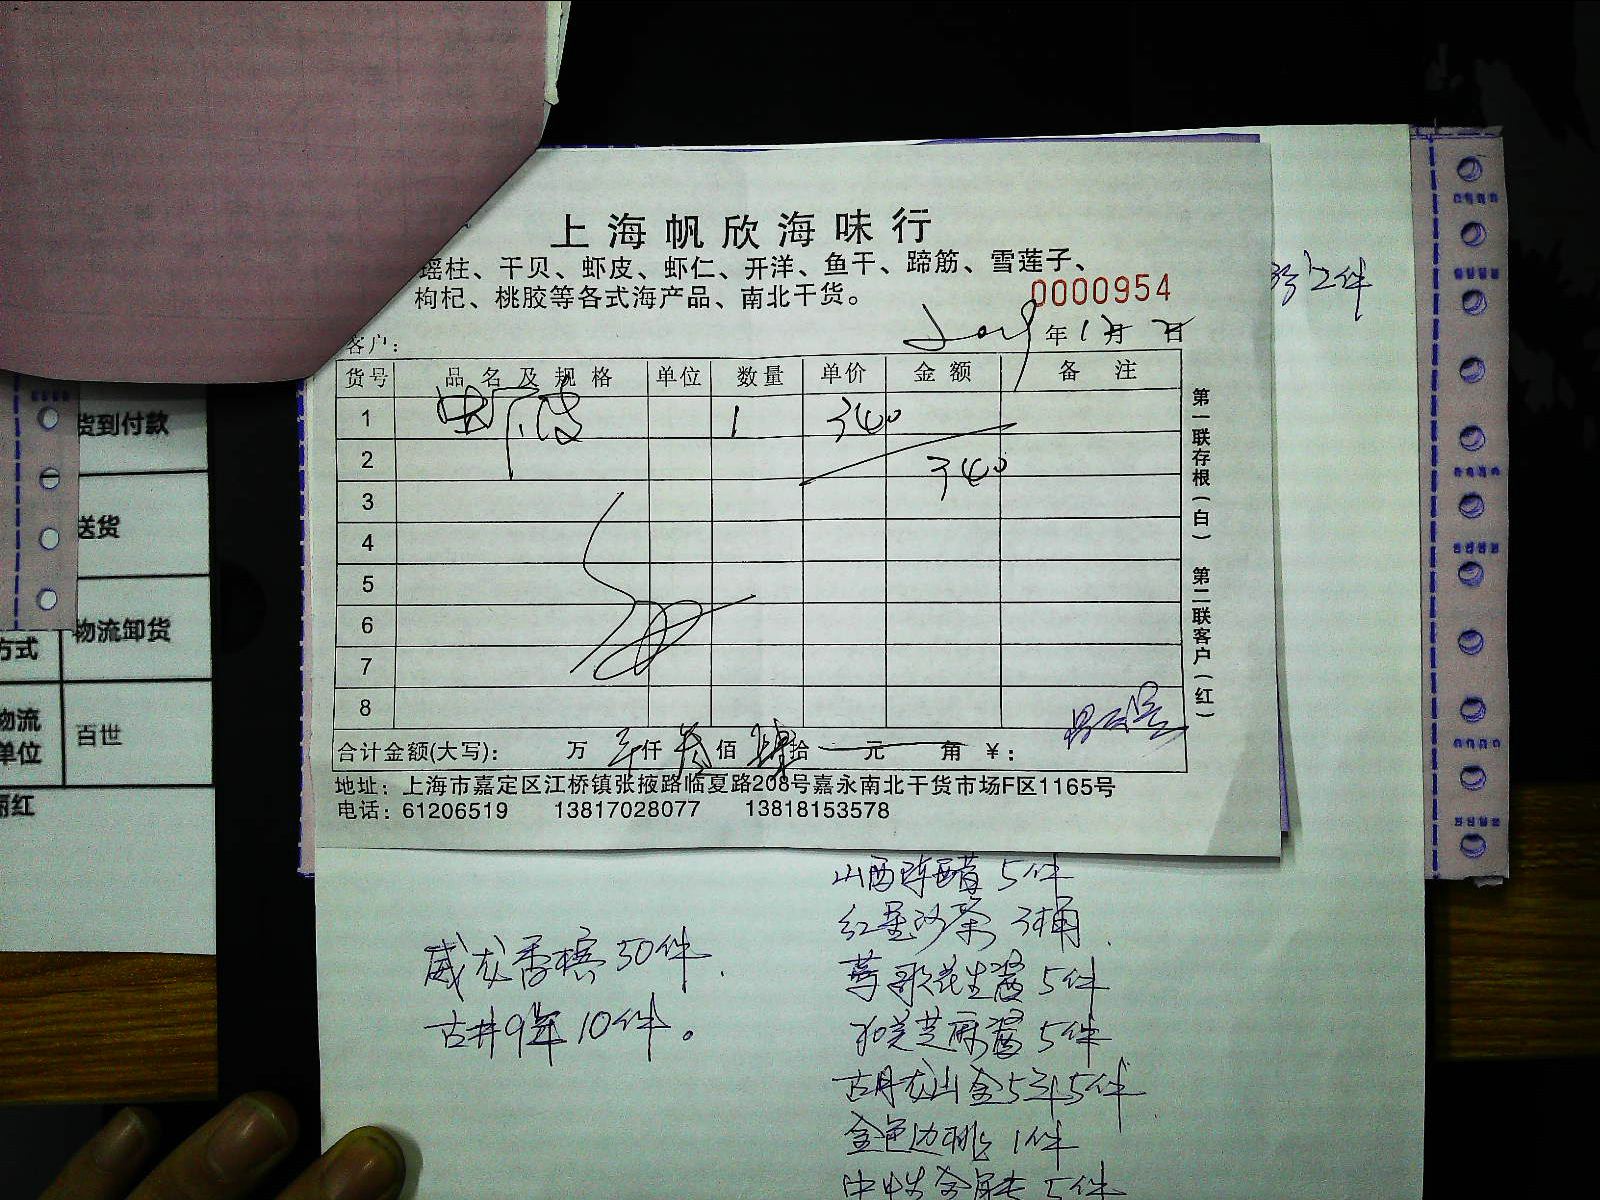 上海帆欣海味行
瑶柱、干贝、虾皮、虾仁、开洋、鱼干、蹄筋、雪莲子、
枸杞、桃胶等各式海产品、南北干货。
0000954
客户：
2019年1月2日
货号 品名及规格 单位 数量 单价 金额 备注
1 虾皮 1 340
2 340
3
4
5
6
7
8
合计金额(大写)： 万 仟 叁佰 肆拾 元 角 ￥：
地址：上海市嘉定区江桥镇张掖路临夏路208号嘉永南北干货市场F区1165号
电话：61206519 13817028077 13818153578
第一联存根(白) 第二联客户(红)
2件
货到付款
送货
物流卸货
方式
物流
单位
百世
丽红
威龙香槟50件
古井9年10件。
山西陈醋5件
红星沙茶3桶
花生酱5件
芝麻酱5件
古月龙山金5年5件
金色边桃1件
5件